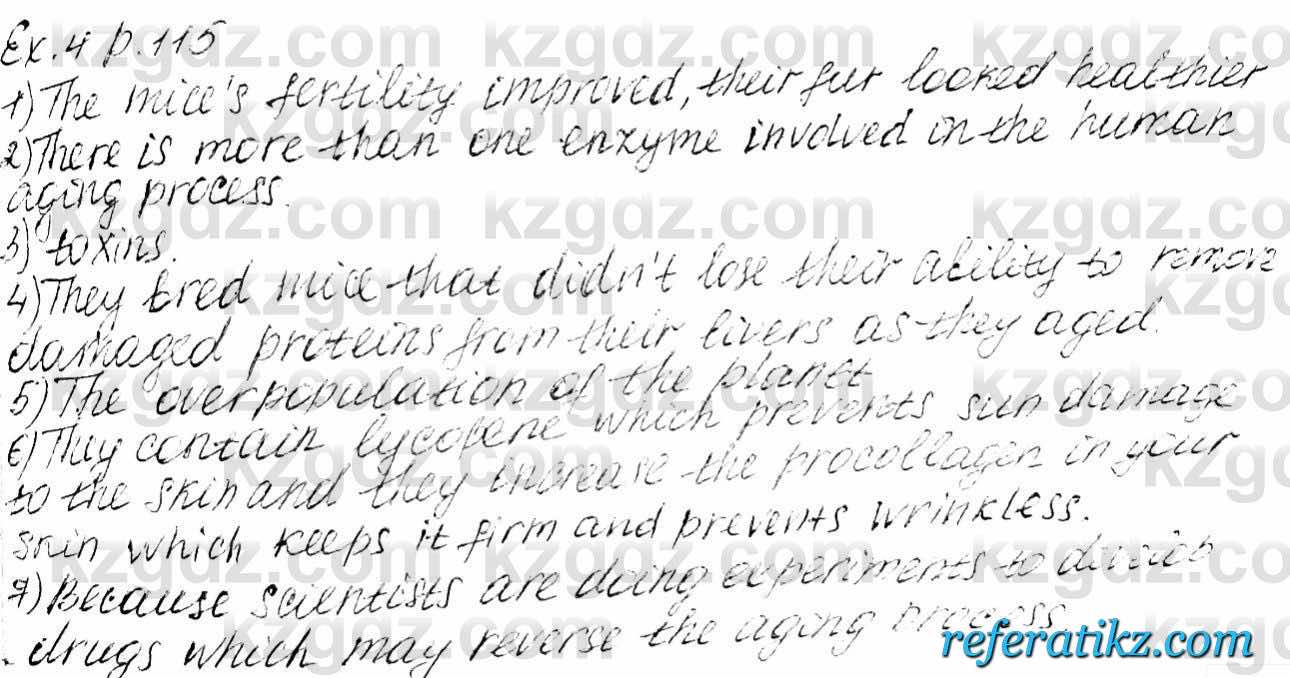 Ex.4 p.115
1) The mice's fertility improved, their fur looked healthier
2) There is more than one enzyme involved in the human
aging process.
3) toxins.
4) They bred mice that didn't lose their ability to remove
damaged proteins from their livers as they aged.
5) The overpopulation of the planet
6) They contain lycopene which prevents sun damage
to the skin and they increase the procollagen in your
skin which keeps it firm and prevents wrinkless.
7) Because scientists are doing experiments to develop
drugs which may reverse the aging process.
referatikz.com